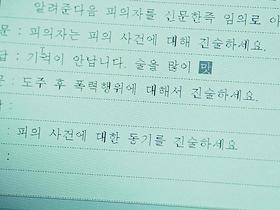 알려준다음 피의자를 신문한즉 임의로 아
문 : 피의자는 피의 사건에 대해 진술하세요.
답 : 기억이 안납니다. 술을 많이 맛
문 : 도주 후 폭력행위에 대해서 진술하세요.
:
: 피의 사건에 대한 동기를 진술하세요
: